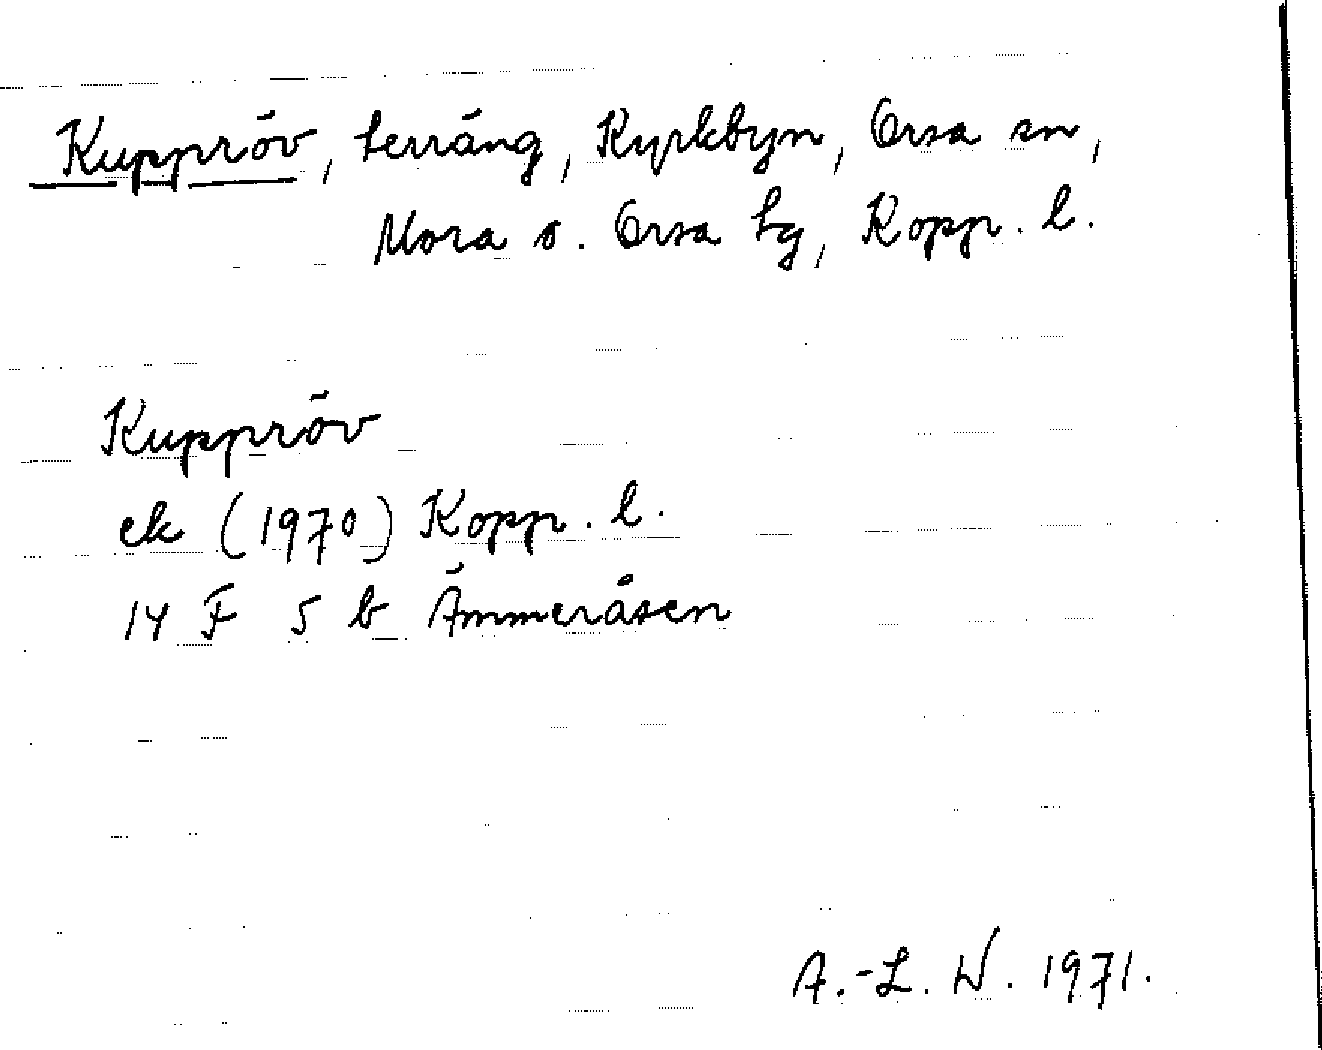 Kuppröv, terräng, Kyrkbyn, Orsa sn,
Mora o. Orsa tg, Kopp. l.
Kuppröv
ek (1970) Kopp. l.
14 F 5 b Ämmeråsen
A.-L. W. 1971.